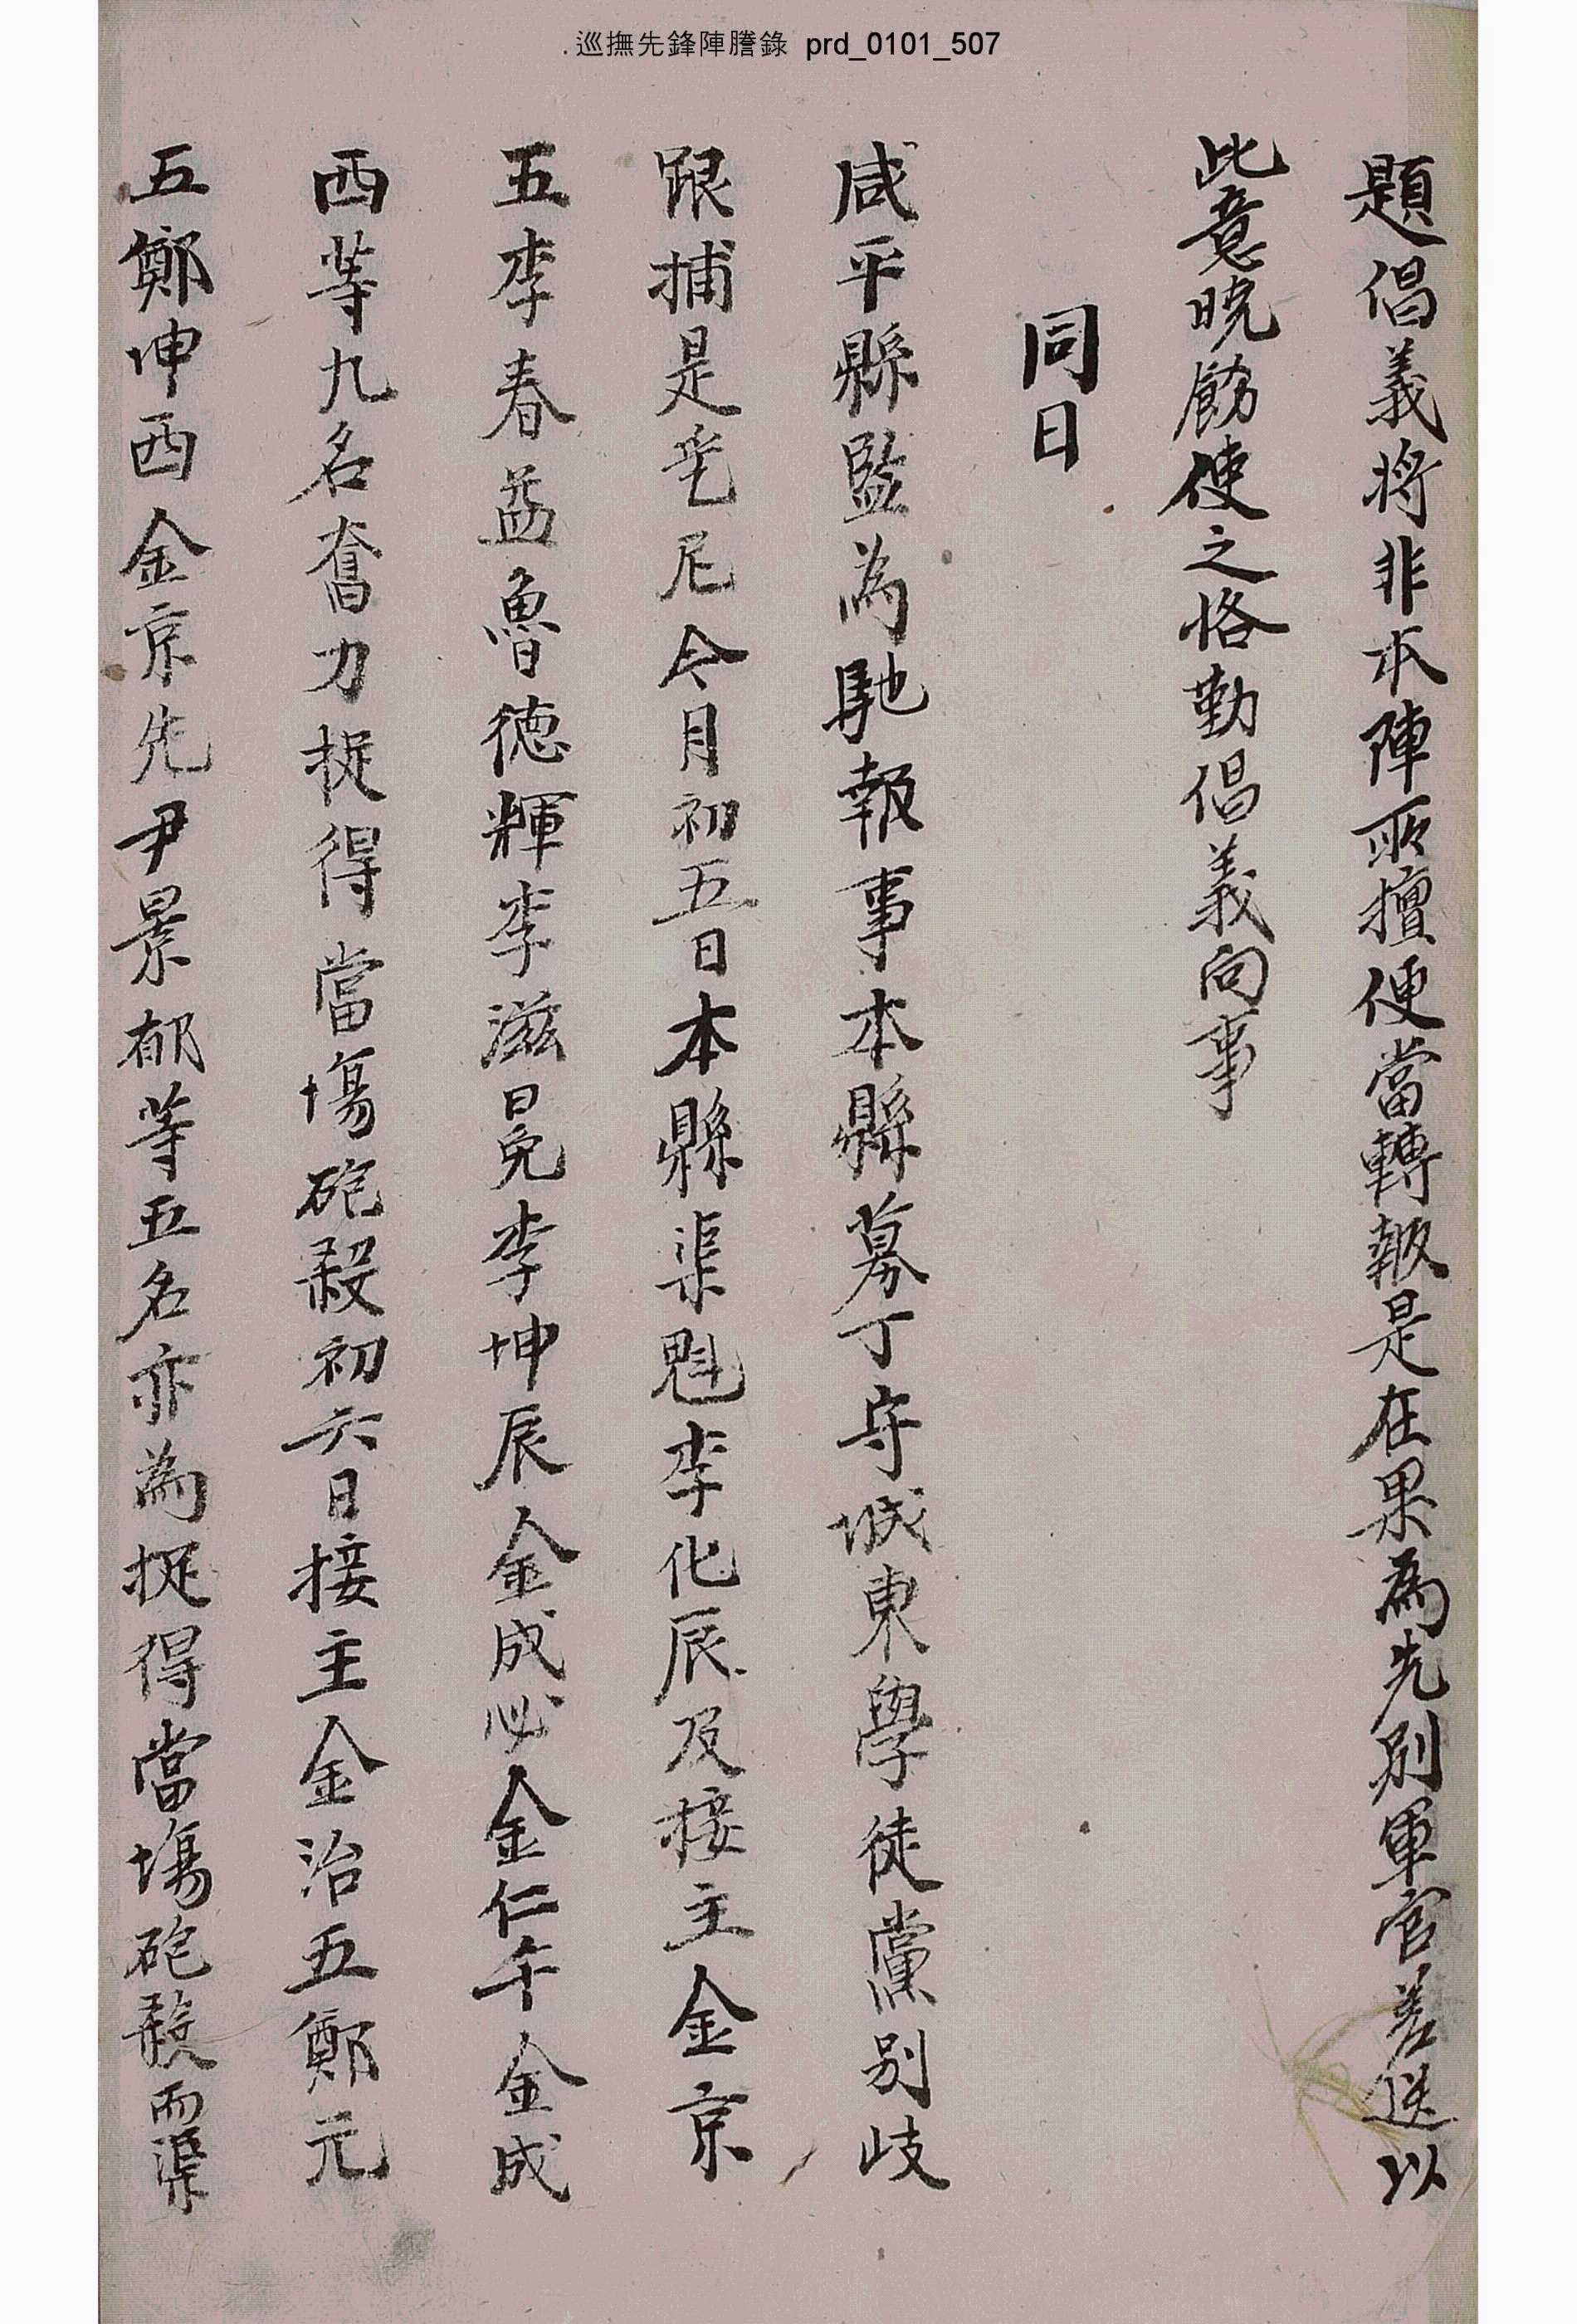 巡撫先鋒陣謄錄 prd_0101_507
題倡義將非本陣所擅便當轉報是在果為先別軍官差送以
此意曉飭使之恪勤倡義向事
同日
咸平縣監為馳報事本縣募丁守城東學徒黨別岐
跟捕是乎尼今月初五日本縣渠魁李化辰及接主金京
五李春益魯德輝李滋晃李坤辰金成必金仁午金成
西等九名奮力捉得當場砲殺初六日接主金治五鄭元
五鄭坤西金京先尹景郁等五名亦為捉得當場砲殺而渠